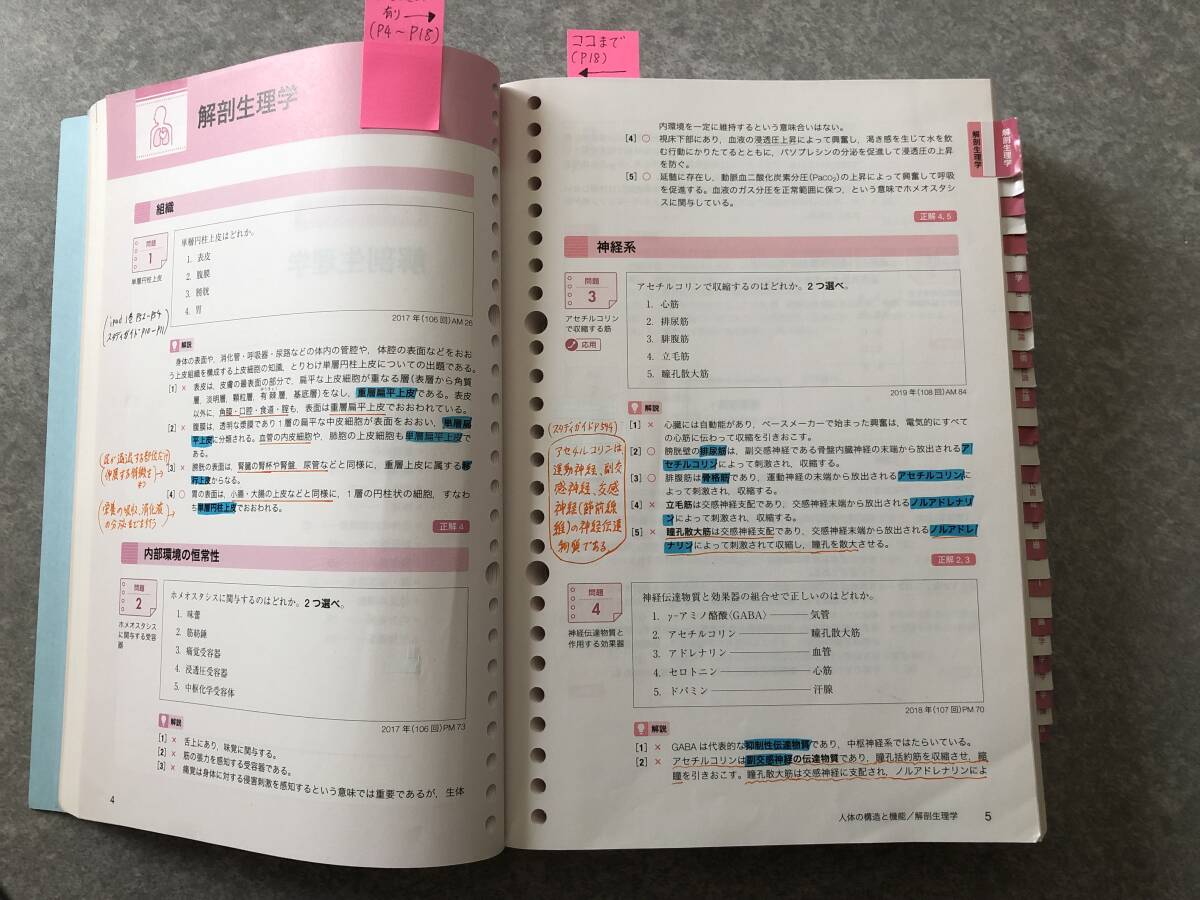 有り→
(P4～P18)
ココまで
(P18)
←
解剖生理学
組織
問題
1
単層円柱上皮
単層円柱上皮はどれか。
1. 表皮
2. 腹膜
3. 膀胱
4. 胃
2017年(106回)AM 26
スタディガイドP10～P11
解説
身体の表面や，消化管・呼吸器・尿路などの体内の管腔や，体腔の表面などをおお
う上皮組織を構成する上皮細胞の知識，とりわけ単層円柱上皮についての出題である。
[1] × 表皮は，皮膚の最表面の部分で，扁平な上皮細胞が重なる層(表層から角質
層，淡明層，顆粒層，有棘層，基底層)をなし，重層扁平上皮である。表皮
以外に，角膜・口腔・食道・腟も，表面は重層扁平上皮でおおわれている。
[2] × 腹膜は，透明な漿膜であり1層の扁平な中皮細胞が表面をおおい，単層扁
平上皮に分類される。血管の内皮細胞や，肺胞の上皮細胞も単層扁平上皮で
ある。
[3] × 膀胱の表面は，腎臓の腎杯や腎盤，尿管などと同様に，重層上皮に属する移
行上皮からなる。
[4] ○ 胃の表面は，小腸・大腸の上皮などと同様に，1層の円柱状の細胞，すなわ
ち単層円柱上皮でおおわれる。
伸展する特徴を
栄養の吸収、消化液
の分泌などを行う
正解 4
内部環境の恒常性
問題
2
ホメオスタシス
に関与する受容
器
ホメオスタシスに関与するのはどれか。2つ選べ。
1. 味蕾
2. 筋紡錘
3. 痛覚受容器
4. 浸透圧受容器
5. 中枢化学受容体
2017年(106回)PM 73
解説
[1] × 舌上にあり，味覚に関与する。
[2] × 筋の張力を感知する受容器である。
[3] × 痛覚は身体に対する侵害刺激を感知するという意味では重要であるが，生体
4
内環境を一定に維持するという意味合いはない。
[4] ○ 視床下部にあり，血液の浸透圧上昇によって興奮し，渇き感を生じて水を飲
む行動にかりたてるとともに，バソプレシンの分泌を促進して浸透圧の上昇
を防ぐ。
[5] ○ 延髄に存在し，動脈血二酸化炭素分圧(Paco₂)の上昇によって興奮して呼吸
を促進する。血液のガス分圧を正常範囲に保つ，という意味でホメオスタシ
スに関与している。
正解 4, 5
解剖生理学
解剖生理学
神経系
問題
3
アセチルコリン
で収縮する筋
応用
アセチルコリンで収縮するのはどれか。2つ選べ。
1. 心筋
2. 排尿筋
3. 腓腹筋
4. 立毛筋
5. 瞳孔散大筋
2019年(108回)AM 84
解説
(スタディガイドP394)
アセチルコリンは
運動神経、副交
感神経、交感
神経(節前線
維)の神経伝達
物質である。
[1] × 心臓には自動能があり，ペースメーカーで始まった興奮は，電気的にすべて
の心筋に伝わって収縮を引きおこす。
[2] ○ 膀胱壁の排尿筋は，副交感神経である骨盤内臓神経の末端から放出されるア
セチルコリンによって刺激され，収縮する。
[3] ○ 腓腹筋は骨格筋であり，運動神経の末端から放出されるアセチルコリンに
よって刺激され，収縮する。
[4] × 立毛筋は交感神経支配であり，交感神経末端から放出されるノルアドレナリ
ンによって刺激され，収縮する。
[5] × 瞳孔散大筋は交感神経支配であり，交感神経末端から放出されるノルアドレ
ナリンによって刺激されて収縮し，瞳孔を散大させる。
正解 2, 3
問題
4
神経伝達物質と
作用する効果器
神経伝達物質と効果器の組合せで正しいのはどれか。
1. γ-アミノ酪酸〈GABA〉――気管
2. アセチルコリン――瞳孔散大筋
3. アドレナリン――血管
4. セロトニン――心筋
5. ドパミン――汗腺
2018年(107回)PM 70
解説
[1] × GABAは代表的な抑制性伝達物質であり，中枢神経系ではたらいている。
[2] × アセチルコリンは副交感神経の伝達物質であり，瞳孔括約筋を収縮させ，縮
瞳を引きおこす。瞳孔散大筋は交感神経に支配され，ノルアドレナリンによ
人体の構造と機能／解剖生理学 5